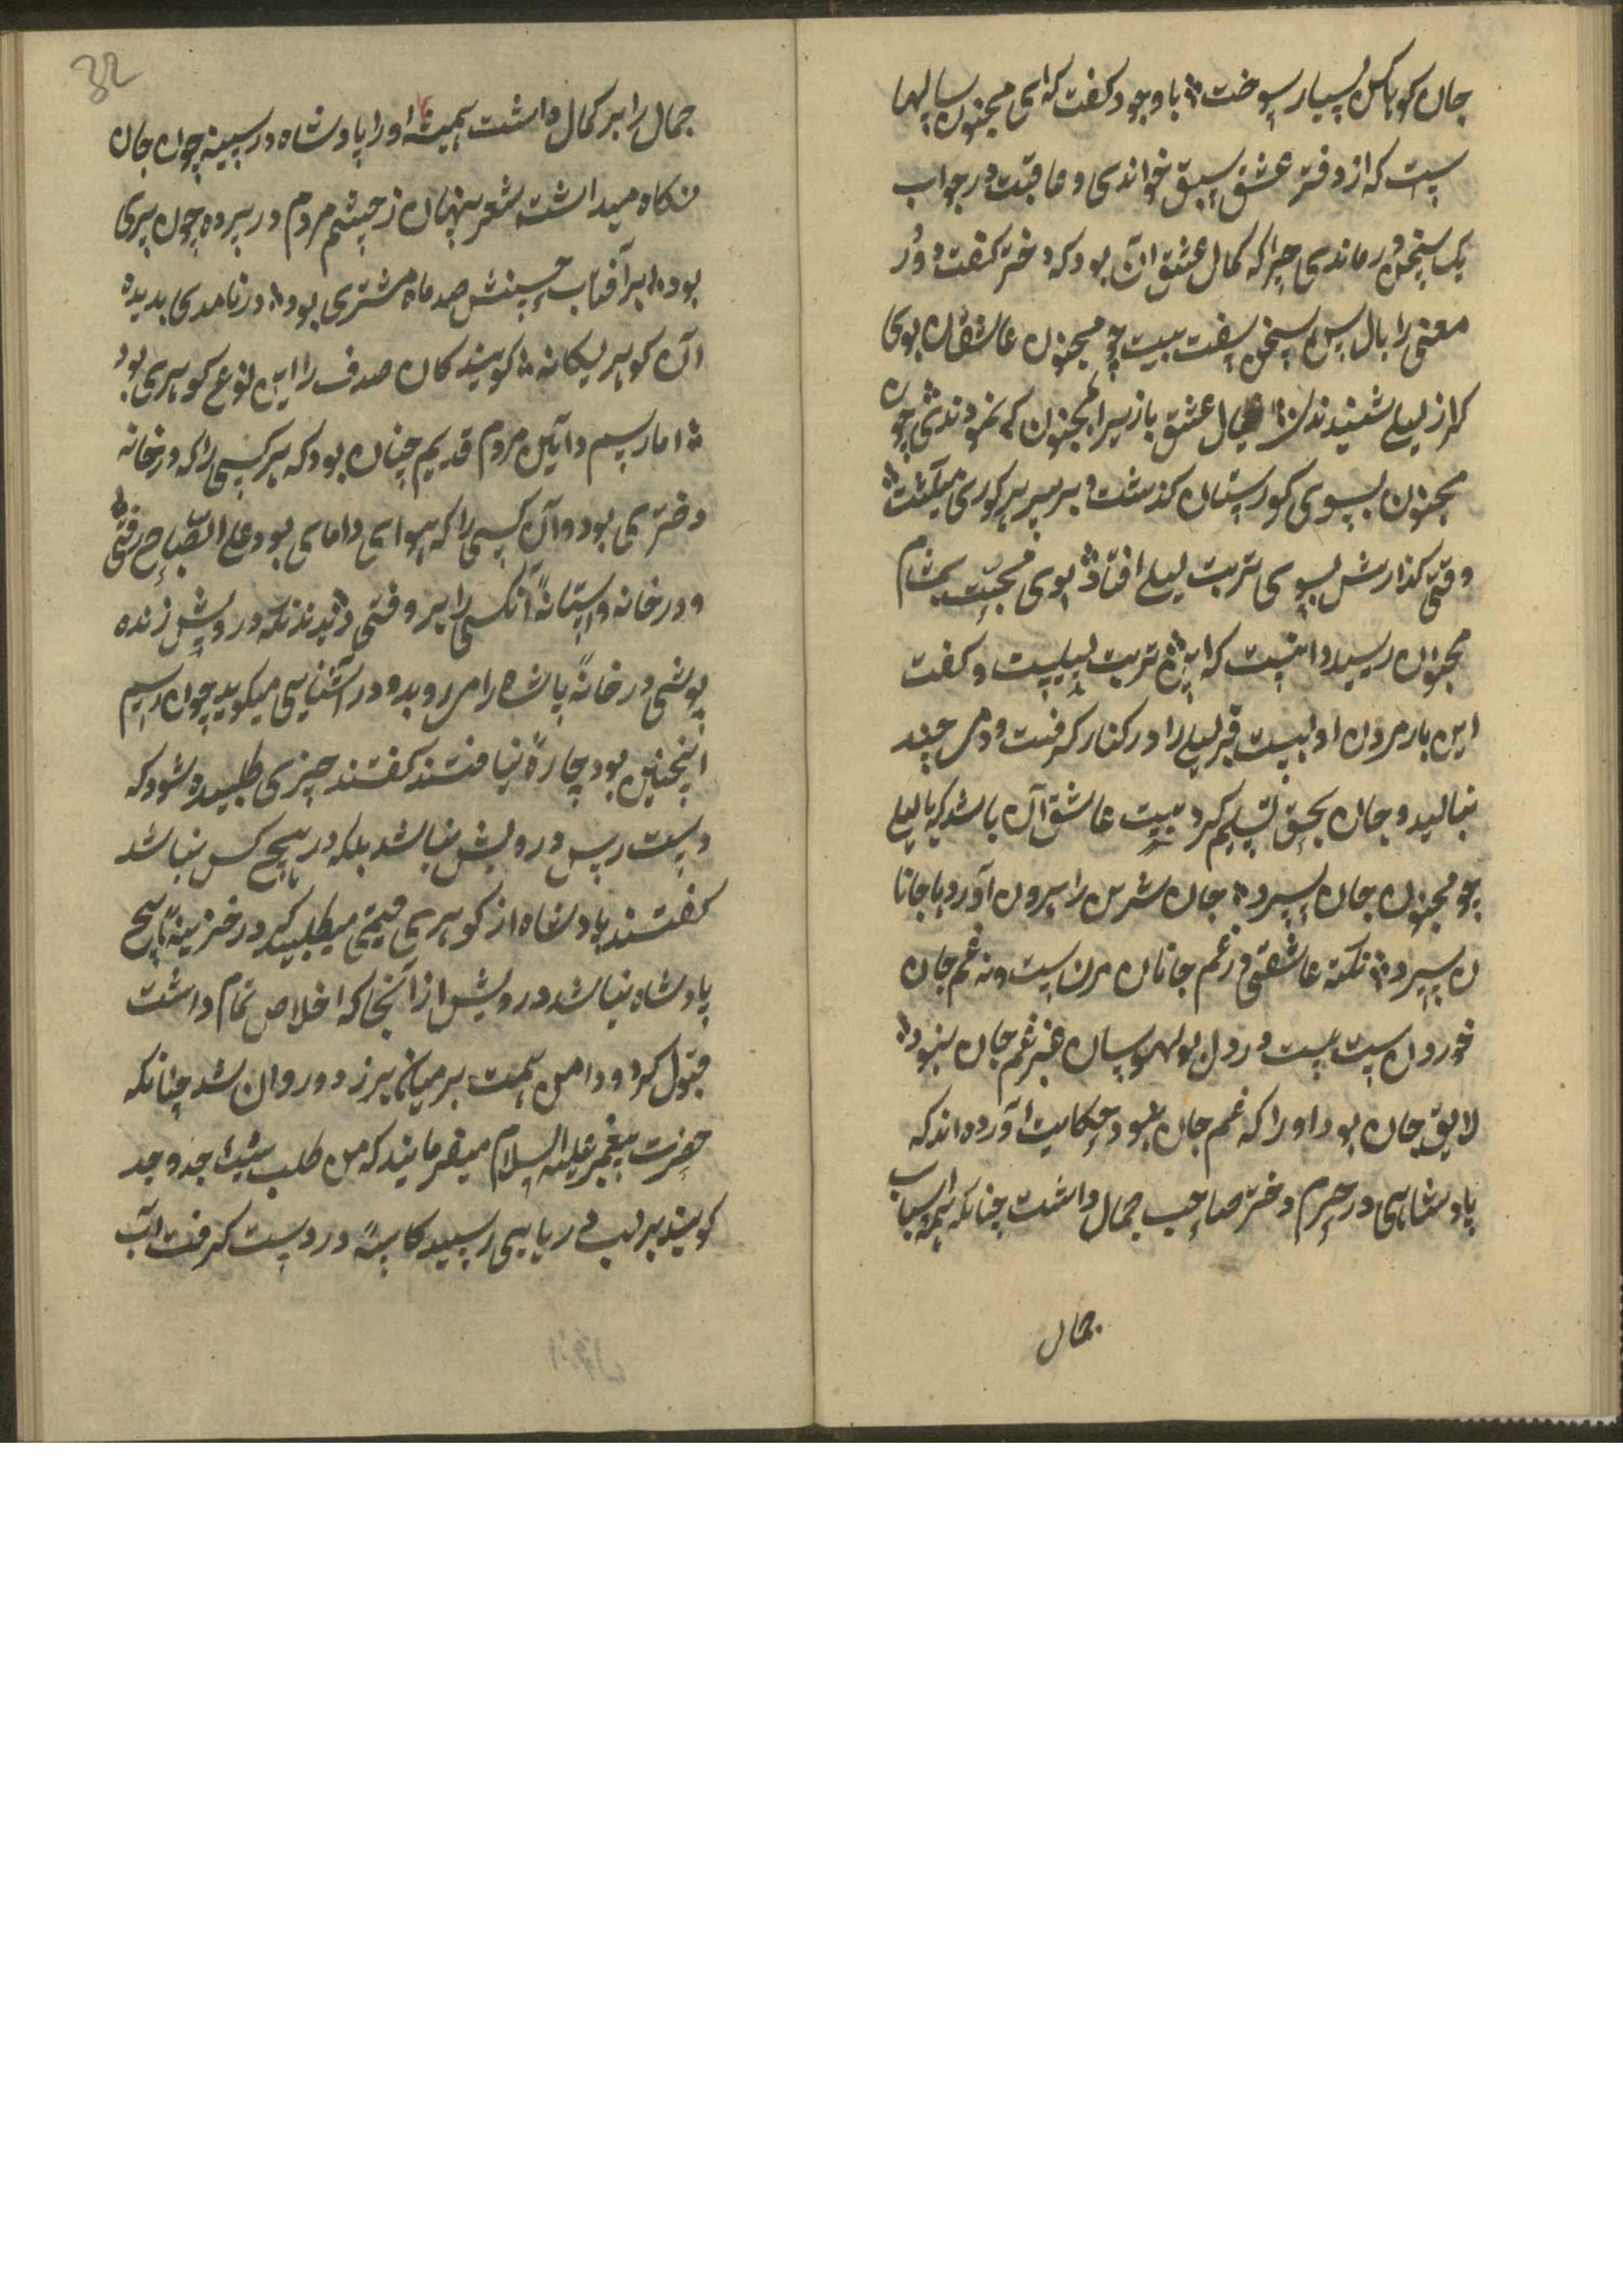 جان کوهکن بسیار سوخت با وجود کفت که ای مجنون سالها
ست که از دفتر عشق سبق خواندی و عاقبت در جواب
یک سخن در ماندی چرا که کمال عشق آن بود که دختر کفت و دُر
معنی را بالماس سخن سفت بیت چو مجنون عاشقان بوی
که از لیلی شنیدندی خیال عشق بازیرا بمجنون کی نمودندی چون
مجنون بسوی کورستان کذشت و بر سر هر کوری میکشت
وقتی کذارش بسوی تربت لیلی افتاد بوی محبت بمشام
مجنون رسید دانست که این تربت لیلیست و کفت
این بار مردن اولیست قبر لیلی را در کنار کرفت و دمی چند
بنالید و جان بحق تسلیم کرد بیت عاشق آن باشد که با لیلی
چو مجنون جان سپرد جان شیرین را بیرون آورد با جانا
ن سپرد نکته عاشقی در غم جانان مردن است و نه غم جان
خوردن است بیت در دل بوالهوسان جز غم جان نبود
لایق جان بود او را که غم جان نبود حکایت آورده اند که
پادشاهی در حرم دختر صاحب جمال داشت چنانکه همه اسباب
جمال
32
جمال را بر کمال داشت همیشه او را پادشاه در سینه چون جان
نکاه میداشت شعر پنهان ز چشم مردم در پرده چون پری
بود بر آفتاب حسنش صد ماه مشتری بود در نامدی بدیده
آن کوهر یکانه کویند کان صدف را این نوع کوهری بود
اما رسم و آیین مردم قدیم چنان بود که هر کسی را که در خانه
دختری بود و آن کسی را که هوای دامادی بود علی الصباح رفتی
و در خانه و آستانهٔ آنکسی را بروفتی دیدند که درویش ژنده
پوشی در خانهٔ پادشاه را می روبد و در آشنایی میکوبد چون رسم
اینچنین بود چارهٔ نیافتند کفتند چیزی طلبیده شود که
دست رس درویش نباشد بلکه در هیچ کس نباشد
کفتند پادشاه از کوهری قیمتی میطلبید که در خزینهٔ هیچ
پادشاه نباشد درویش از آنجا که اخلاص تمام داشت
قبول کرد و دامن همت بر میان برزد و روان شد چنانکه
حضرت پیغمبر علیه السلام میفرمایند که من طلب شیئا جد وجد
کویند بر لب دریایی رسید کاسهٔ در دست کرفت آب